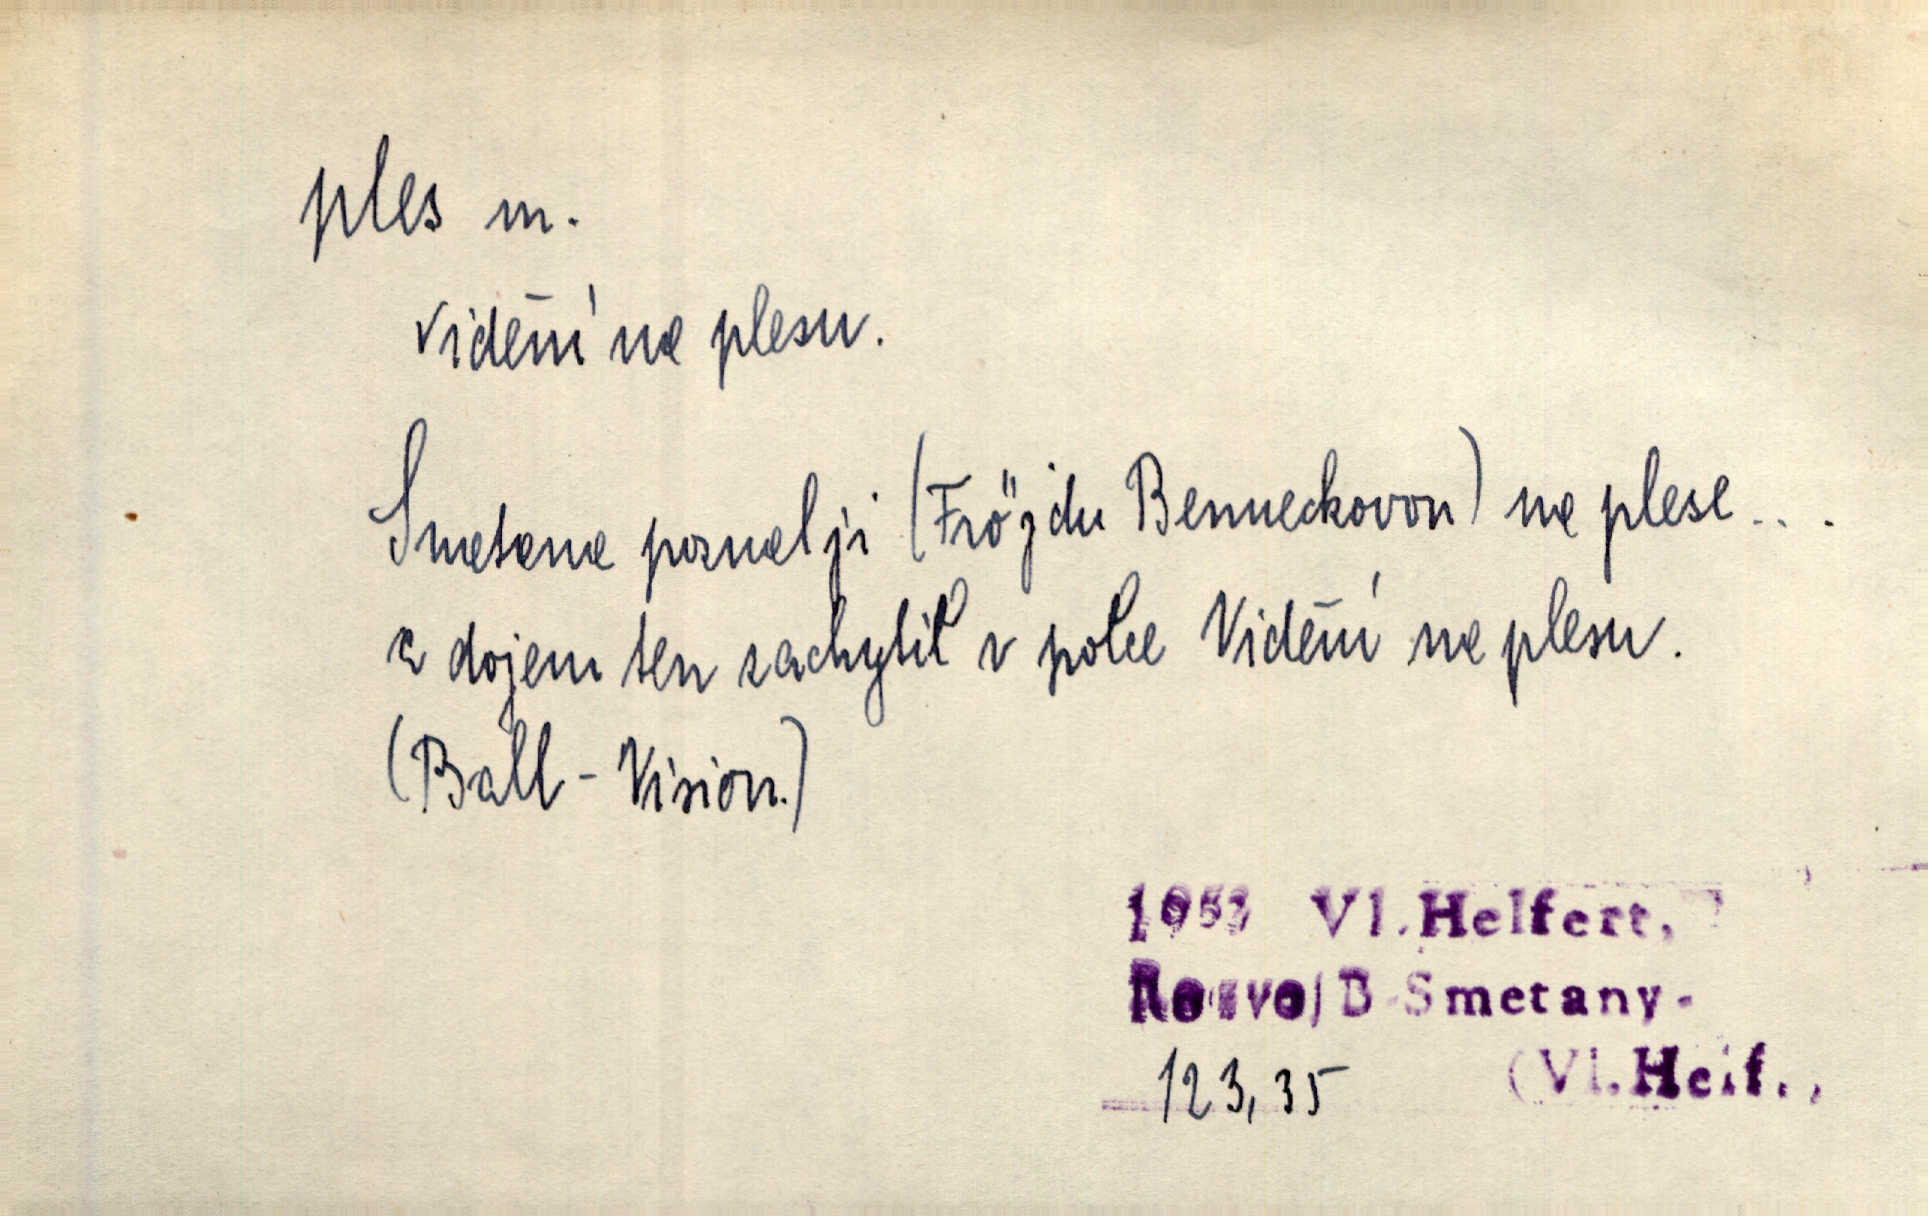 ples m.
Vidění na plesu.
Smetana poznal ji (Fröjdu Benneckovou) na plese...
a dojem ten zachytil v polce Vidění na plesu.
(Ball-Vision.)
1953 Vl. Helfert,
B. Smetany-
123,35 (Vl. Helf.,